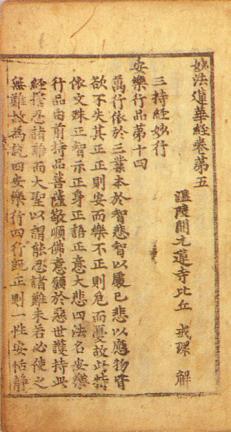 妙法蓮華經卷第五
溫陵開元蓮寺比丘 戒環 解
三持經妙行
安樂行品第十四
萬行依於三業本於智悲智以處已悲以應物
欲不失其正正則安而樂不正則危而憂故此
依文殊正智示正身正語正意大悲四法名安樂
行品由前持品菩薩敬順佛意願於惡世護持此
經捨忍諸難而大聖以謂能忍諸難未若必使之
無難故為說四安樂行四行既正則一性安恬靜